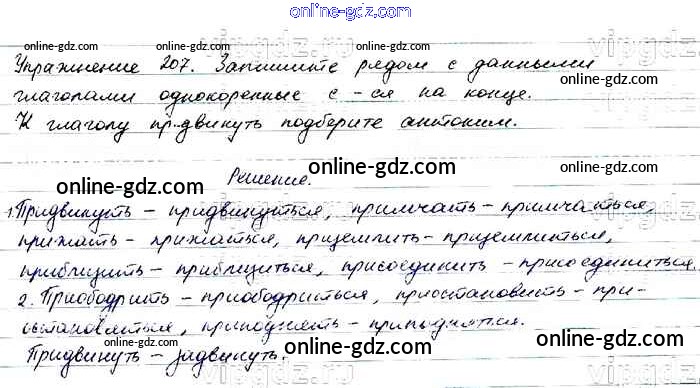 online-gdz.com
online-gdz.com online-gdz.com vipgdz
Упражнение 207. Запишите рядом с данными
глаголами однокоренные с -ся на конце.
К глаголу пр..двинуть подберите антоним.
online-gdz.com
Решение.
online-gdz.com online-gdz.com
1. Придвинуть – придвинуться, примчать – примчаться,
прижать – прижаться, приземлить – приземлиться,
приблизить – приблизиться, присоединить – присоединиться.
2. Приободрить – приободриться, приостановить – при-
остановиться, приподнять – приподняться.
Придвинуть – задвинуть.
online-gdz.com online-gdz.com
online-gdz.com vipgdz